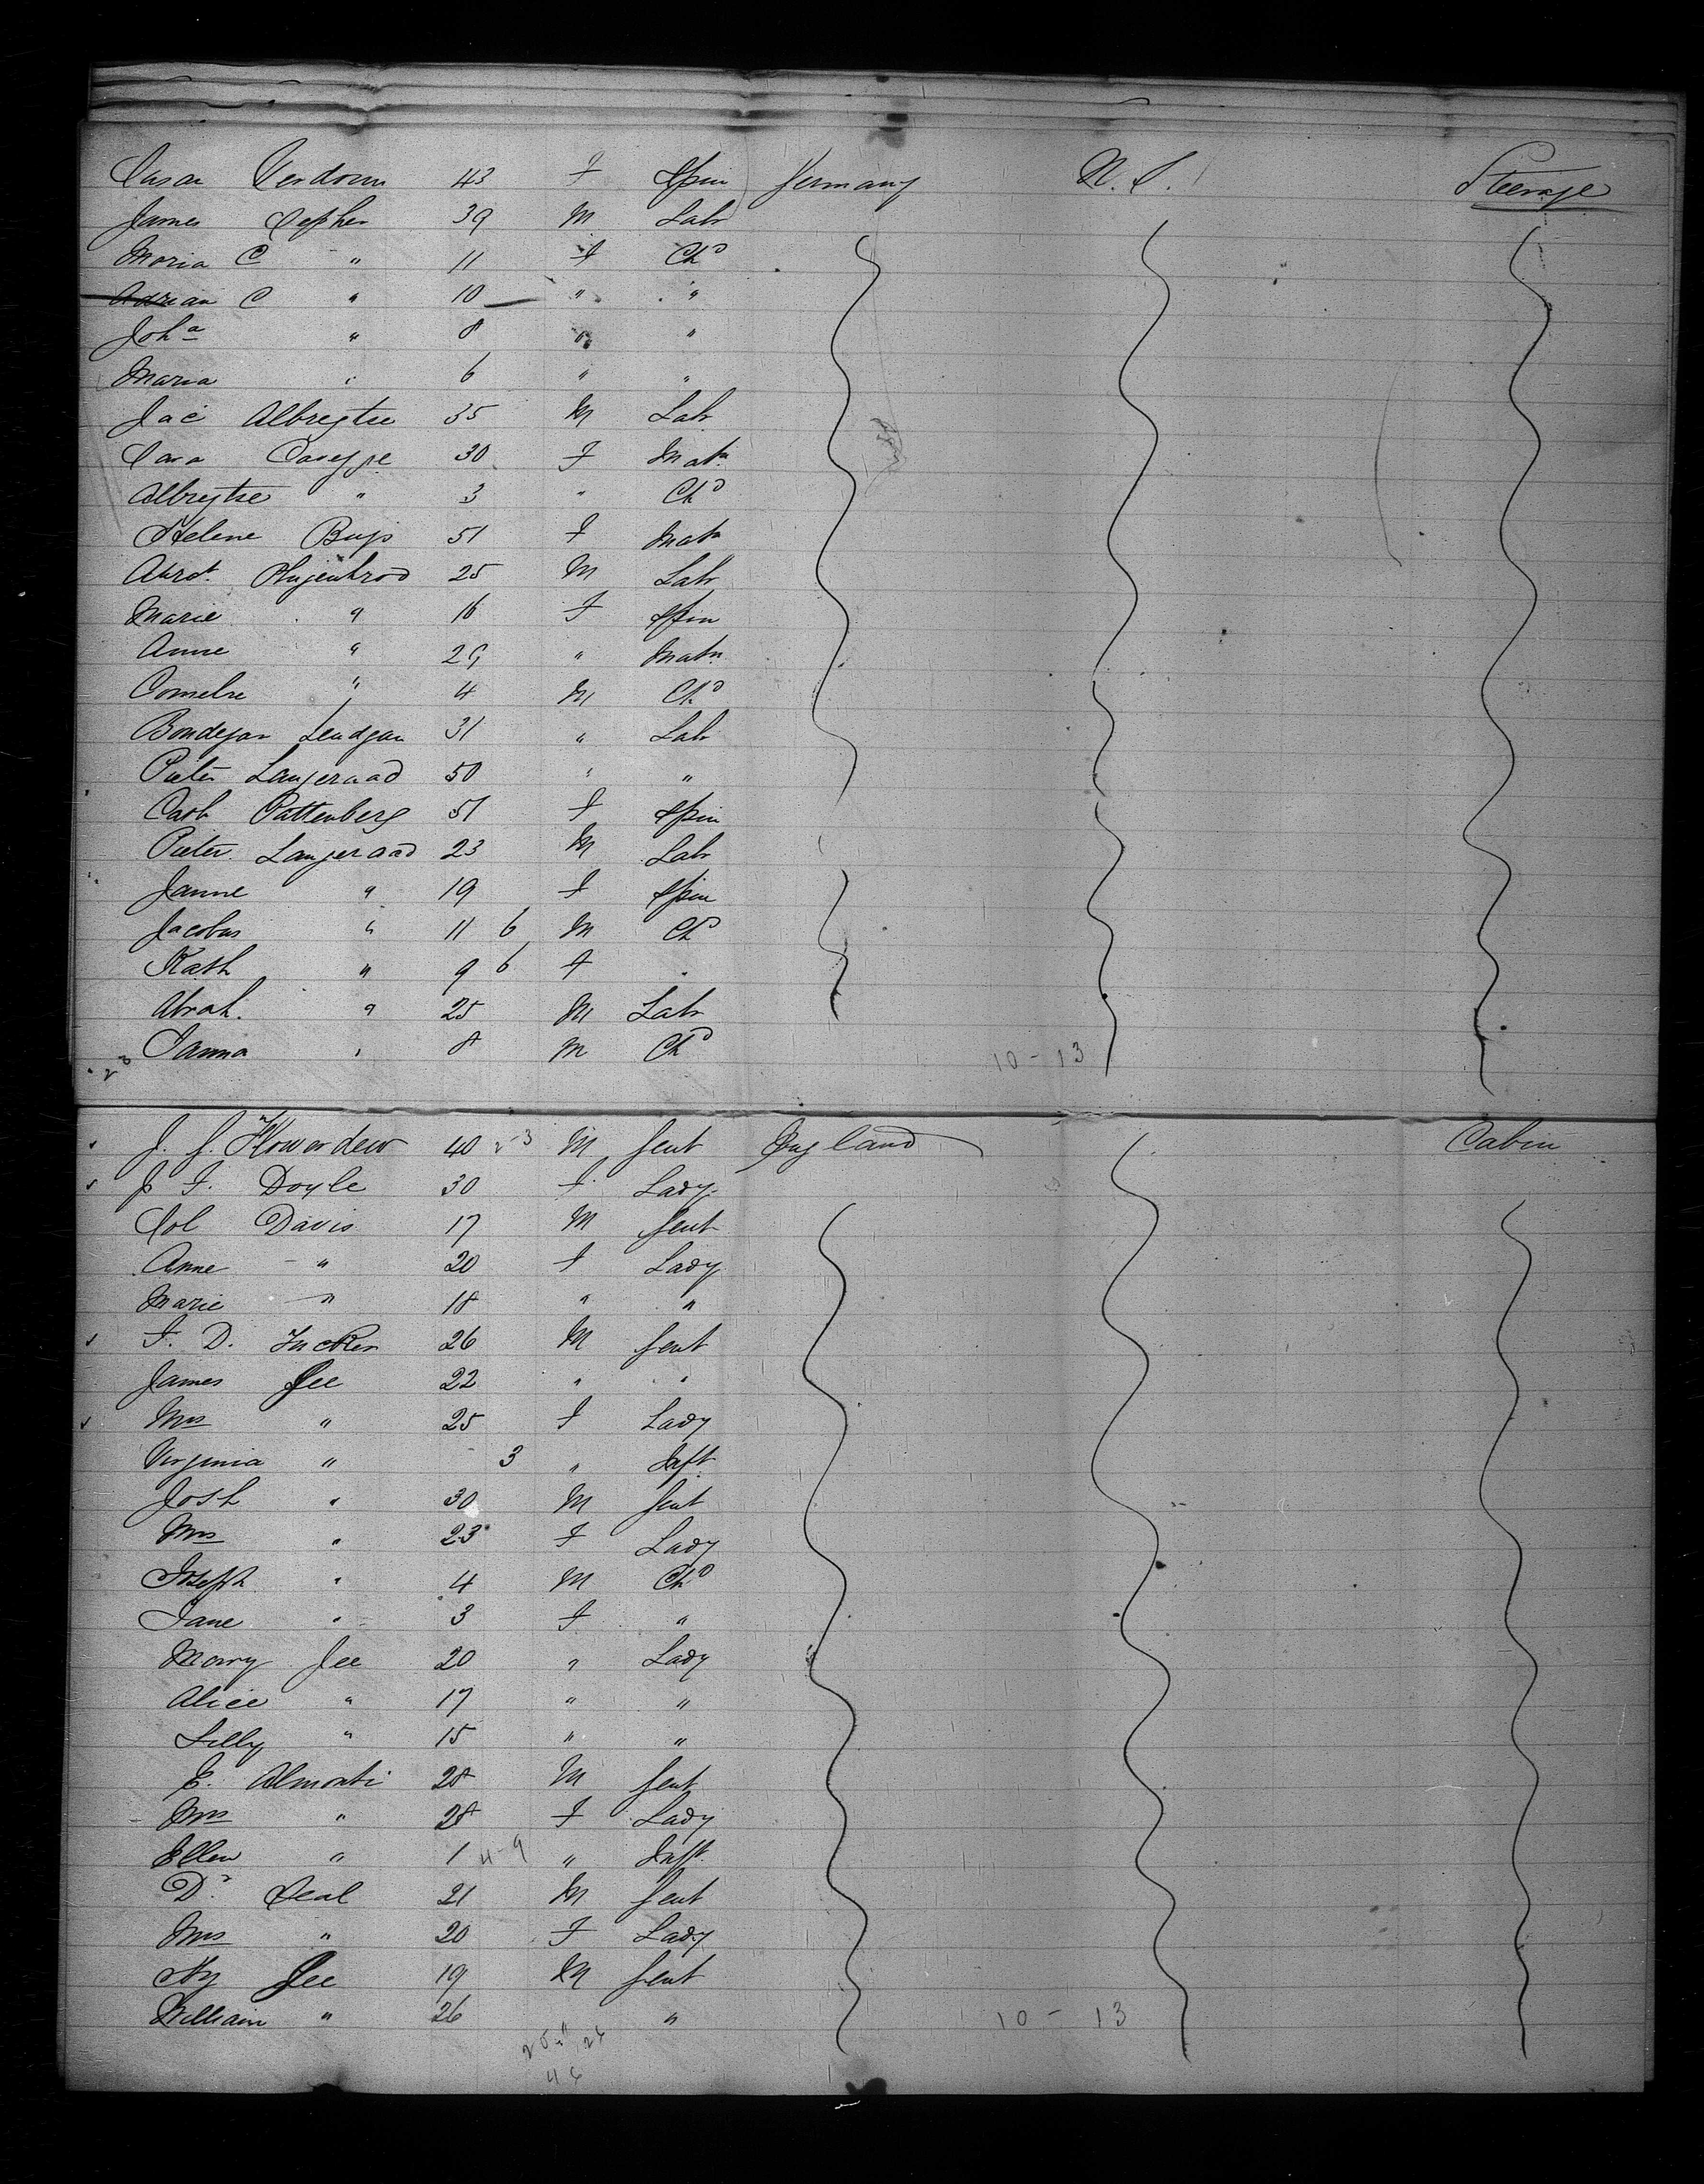 Verdouw 43 F Spin Germany U.S. Steerage
James 39 M Labr
Maria C " 11 F Chd
Adrian C " 10 " "
Joha " 8 " "
Maria " 6 " "
Jac Albregtse 35 M Labr
30 F Matn
Albregtse " 3 " Chd
Helene Buys 51 F Matn
25 M Labr
Marie " 16 F Spin
Anne " 29 " Matn
" 4 M Chd
31 " Labr
Pieter Langeraad 50 " "
Cath Pattenberg 51 F Spin
Pieter Langeraad 23 M Labr
Janne " 19 F Spin
Jacobus " 11 6 M Chd
Kath " 9 6 F "
Abrah. " 25 M Labr
Janna " 8 M Chd 10-13
J. J. Howerdew 40 M Gent England Cabin
J F. Doyle 30 F Lady
Col Davis 17 M Gent
Anne " 20 F Lady
Marie " 18 " "
F. D. Tucker 26 M Gent
James Gee 22 " "
Mrs " 25 F Lady
Virginia " 3 " Inft
Josh " 30 M Gent
Mrs " 23 F Lady
Joseph " 4 M Chd
Jane " 3 F "
Mary Gee 20 " Lady
Alice " 17 " "
Lilly " 15 " "
E. Almonti 28 M Gent
Mrs " 28 F Lady
Ellen " 1 4-9 " Inft
Dr. Seal 21 M Gent
Mrs " 20 F Lady
Hy Gee 19 M Gent
William " 26 " 10-13